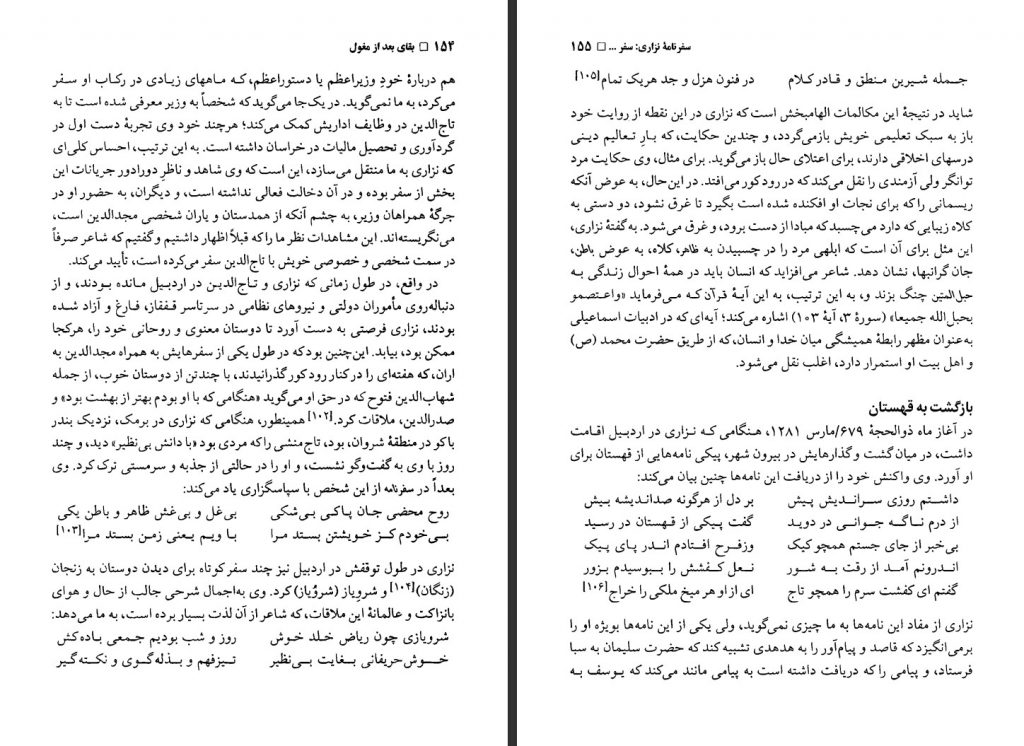 ۱۵۴ □ بقای بعد از مغول
هم دربارهٔ خودِ وزیراعظم یا دستوراعظم، که ماههای زیادی در رکاب او سفر
می‌کرد، به ما نمی‌گوید. در یک‌جا می‌گوید که شخصاً به وزیر معرفی شده است تا به
تاج‌الدین در وظایف اداریش کمک می‌کند؛ هرچند خود وی تجربهٔ دست اول در
گردآوری و تحصیل مالیات در خراسان داشته است. به این ترتیب، احساس کلی‌ای
که نزاری به ما منتقل می‌سازد، این است که وی شاهد و ناظرِ دورادور جریانات این
بخش از سفر بوده و در آن دخالت فعالی نداشته است، و دیگران، به حضور او در
جرگهٔ همراهان وزیر، به چشم آنکه از همدستان و یاران شخصی مجدالدین است،
می‌نگریسته‌اند. این مشاهدات نظر ما را که قبلاً اظهار داشتیم و گفتیم که شاعر صرفاً
در سمت شخصی و خصوصی خویش با تاج‌الدین سفر می‌کرده است، تأیید می‌کند.
در واقع، در طول زمانی که نزاری و تـاج‌الدیـن در اردبـیل مـانده بـودند، و از
دنباله‌روی مأموران دولتی و نیروهای نظامی در سرتاسر قفقاز، فـارغ و آزاد شـده
بودند، نزاری فرصتی به دست آورد تا دوستان معنوی و روحانی خود را، هرکجا
ممکن بود، بیابد. این‌چنین بود که در طول یکی از سفرهایش به همراه مجدالدین به
اران، که هفته‌ای را در کنار رود کور گذرانیدند، با چندتن از دوستان خوب، از جمله
شهاب‌الدین فتوح که در حق او می‌گوید «هنگامی که با او بودم بهتر از بهشت بود» و
صدرالدین، ملاقات کرد.[۱۰۲] همینطور، هنگامی که نزاری در برمک، نزدیک بندر
باکو در منطقهٔ شروان، بود، تاج منشی را که مردی بود «با دانش بی‌نظیر» دید، و چند
روز با وی به گفت‌وگو نشست، و او را در حالتی از جذبه و سرمستی ترک کرد. وی
بعداً در سفرنامه از این شخص با سپاسگزاری یاد می‌کند:
روح محضی جـان پـاکـی بی‌شکی    بی‌غل و بی‌غش ظاهر و باطن یکی
بـــی‌خودم کــز خـویشتن بستد مـرا    بـا ویـم یـعنی زمـن بستد مـرا[۱۰۳]
نزاری در طول توقفش در اردبیل نیز چند سفر کوتاه برای دیدن دوستان به زنجان
(زنگان)[۱۰۴] و شرویاز (شرؤیاز) کرد. وی به‌اجمال شرحی جالب از حال و هوای
بانزاکت و عالمانهٔ این ملاقات، که شاعر از آن لذت بسیار برده است، به ما می‌دهد:
شرویازی چون ریاض خـلد خـوش    روز و شب بودیم جـمعی بـاده‌کش
خــوش‌حریفانی بـغایت بـی‌نظیر    تـیزفهم و بـذله‌گوی و نکـته‌گیر
سفرنامهٔ نزاری: سفر ... □ ۱۵۵
جــمله شـیرین مـنطق و قـادر کـلام    در فنون هزل و جد هریک تمام[۱۰۵]
شاید در نتیجهٔ این مکالمات الهامبخش است که نزاری در این نقطه از روایت خود
باز به سبک تعلیمی خویش بازمی‌گردد، و چندین حکایت، که بـارِ تـعالیم دیـنی
درسهای اخلاقی دارند، برای اعتلای حال باز می‌گوید. برای مثال، وی حکایت مرد
توانگر ولی آزمندی را نقل می‌کند که در رود کور می‌افتد. در این‌حال، به عوض آنکه
ریسمانی را که برای نجات او افکنده شده است بگیرد تا غرق نشود، دو دستی به
کلاه زیبایی که دارد می‌چسبد که مبادا از دست برود، و غرق می‌شود. به گفتهٔ نزاری،
این مثل برای آن است که ابلهی مرد را در چسبیدن به ظاهر، کلاه، به عوض باطن،
جان گرانبها، نشان دهد. شاعر می‌افزاید که انسان باید در همهٔ احوال زنـدگی بـه
حبل‌المتین چنگ بزند و، به این ترتیب، به این آیـهٔ قـرآن کـه مـی‌فرماید «واعـتصمو
بحبل‌الله جمیعا» (سورهٔ ۳، آیهٔ ۱۰۳) اشاره می‌کند؛ آیه‌ای که در ادبیات اسماعیلی
به‌عنوان مظهر رابطهٔ همیشگی میان خدا و انسان، که از طریق حضرت محمد (ص)
و اهل بیت او استمرار دارد، اغلب نقل می‌شود.
بازگشت به قهستان
در آغاز ماه ذوالحجهٔ ۶۷۹/مارس ۱۲۸۱، هـنگامی کـه نـزاری در اردبـیل اقـامت
داشت، در میان گشت و گذارهایش در بیرون شهر، پیکی نامه‌هایی از قهستان برای
او آورد. وی واکنش خود را از دریافت این نامه‌ها چنین بیان می‌کند:
داشــتم روزی ســرانـدیش پـیش    بر دل از هرگونه صداندیشه بـیش
از درم نـاگــه جـوانـی در دویـد    گفت پـیکی از قـهستان در رسـید
بی‌خبر از جای جستم همچو کیک    وزفــرح افـتادم انـدر پـای پـیک
انـدرونم آمـد از رقت بـه شـور    نــعل کـفشش را بـبوسیدم بـزور
گفتم ای کفشت سرم را همچو تاج    ای از او هر میخ ملکی را خراج[۱۰۶]
نزاری از مفاد این نامه‌ها به ما چیزی نمی‌گوید، ولی یکی از این نامه‌ها بویژه او را
برمی‌انگیزد که قاصد و پیام‌آور را به هدهدی تشبیه کند که حضرت سلیمان به سبا
فرستاد، و پیامی را که دریافت داشته است به پیامی مانند می‌کند که یـوسف بـه